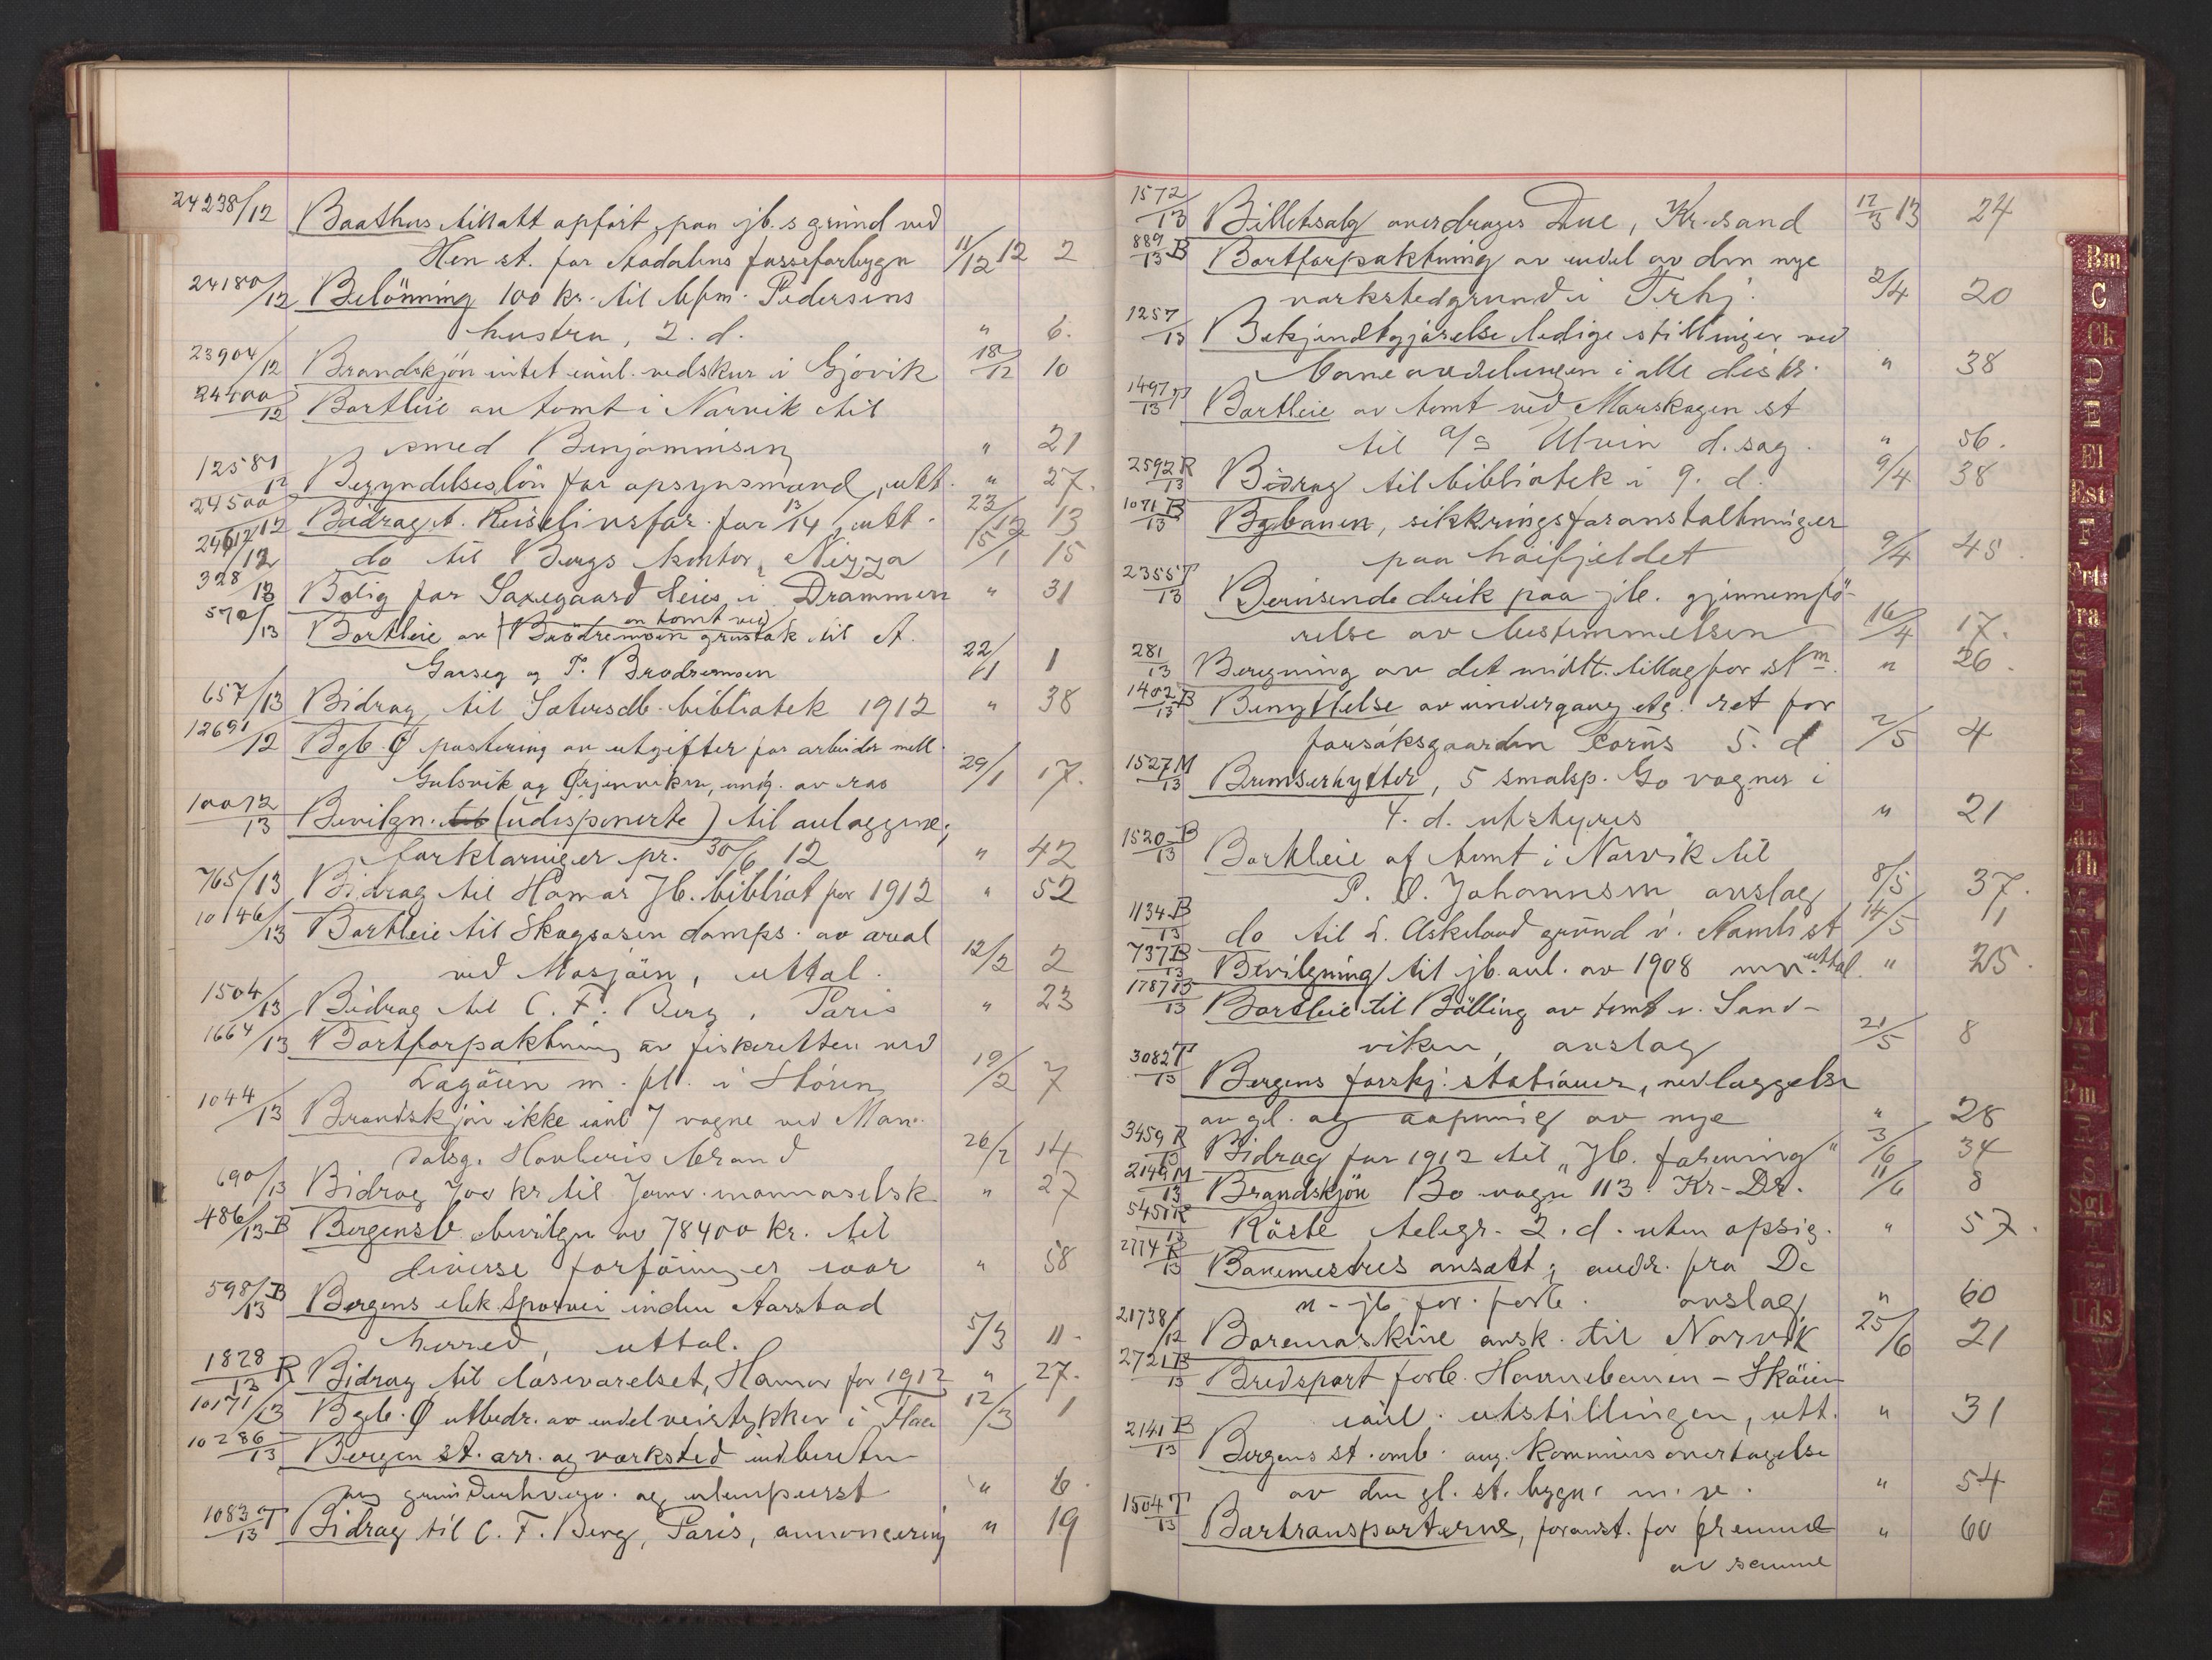 24238/12 Baathus tillatt opført paa jb.s grund ved
Hen st. for Aadalens fosseforbygn 11/12 12 2
24180/12 Belönning 100 kr. til bfm. Pedersens
hustru, 2. d. " 6.
23904/12 Brandskjön intet indl. vedskur i Gjövik 18/12 10
24400/12 Bortleie av tomt i Narvik til
smed Benjaminsen " 21
12581/12 Begyndelseslön for opsynsmænd, utt. " 27.
24500/12 Bidrag t. Reiselivsfor. for 13/14, utt. 23/12 13
24617/12 do til Bergs kontor, Nizza 15/1 15
328/13 Bolig for Saxegaard leies i Drammen " 31
570/13 Bortleie av en tomt ved Brödremoen grustak til A.
Garseg og T. Brödremoen 22/1 1
657/13 Bidrag til Setersdb. bibliotek 1912 " 38
12691/12 Bgb. Ø postering av utgifter for arbeider mell.
Gulsvik og Ørjenviken, undg. av ras 29/1 17.
10012/13 Bevilgn. (udisponerte) til anlæggene;
forklaringer pr. 30/6 12 " 42
765/13 Bidrag til Hamar Jb. bibliot for 1912 " 52
10146/13 Bortleie til Skogsaasen damps. av areal
ved Mosjöen, uttal. 12/2 2
1504/13 Bidrag til C. F. Berg, Paris " 23
1664/13 Bortforpaktning av fiskeretten ved
Lagöien m. fl. i Stören 19/2 7
1044/13 Brandskjön ikke indl 7 vogne ved Man-
dalsg. Havberis brand 26/2 14
690/13 Bidrag 700 kr til Jernv. mannaselsk " 27
486/13 B Bergensb. bevilgn av 78400 kr. til
diverse forföininger iaar " 58
598/13 B Bergens elek Sporvei inden Aarstad
herred, uttal. 5/3 11.
1828/13 R Bidrag til læseværelset, Hamar for 1912 " 27.
10171/13 Bgb. Ø utbedr. av endel veistykker i Flaa 12/3 1
10286/13 Bergen st. arr. og verksted indberetn
ang grunderhverv. og planpurst " 6.
1083 T/13 Bidrag til C. F. Berg, Paris, annoncering " 19
1572/13 Billetsalg overdrages Due, Kr.sand 12/3 13 24
889/13 B Bortforpaktning av endel av den nye
verkstedgrund i Trhj. 2/4 20
1257/13 Bekjendtgjörelse ledige stillinger ved
baneavdelingen i alle distr. " 38
1497 T/13 Bortleie av tomt ved Morskogen st
til a/s Ulvin d. sag. " 56.
2592 R/13 Bidrag til bibliotek i 9. d. 9/4 38
1071 B/13 Bgbanen, sikkringsforanstaltninger
paa höifjeldet 9/4 45.
2355 T/13 Berusende drik paa jb. gjennemfö-
relse av bestemmelsen 16/4 17.
281/13 Beregning av det midlt. tillæg for stm. " 26.
1402 B/13 Benyttelse av undergang etc. ret for
forsöksgaarden Voms 5. d 2/5 4
1527 M/13 Bremserhytter, 5 smalsp. Go vogner i
4. d. utstyres " 21
1520 B/13 Bortleie af tomt i Narvik til
P. O. Johannsen avslag 8/5 37.
1134 B/13 do til L. Askeland grund v. Aamli st 14/5 11
737 B/13 Bevilgning til jb. anl. av 1908 mv. uttal. " 25.
1787 B/13 Bortleie til Bölling av tomt v. Sand-
viken, avslag 21/5 8
3082 T/13 Bergens forskj. stationer, nedlæggelse
av gl. og aapning av nye " 28
3459 R/13 Bidrag for 1912 til „Jb. forening" 3/6 34
2149 M/13 Brandskjön Bo vogn 113 Kr-Dr. 11/6 8
5451 R/13 Röste telegr. 2. d. uten opsig. " 57.
2774 R/13 Banemestres ansætt; andr. fra De
n-jb.for. forb. avslag " 60
21738/12 Boremaskine ansk. til Narvik 25/6 21
2721 B/13 Bredsport forb. Havnebanen - Sköien
indl. utstillingen, utt. " 31
2141 B/13 Bergens st. omb. ang. kommuns overtagelse
av den gl. st. bygn. m. v. " 54
1504 T/13 Bærtransporterne, foranst. for fremme " 60
av samme
Bm
C
Ck
D
E
El
Est
F
Frt
Fra
G
H
M
N
O
Pm
S
Sgl
T
Uds
V